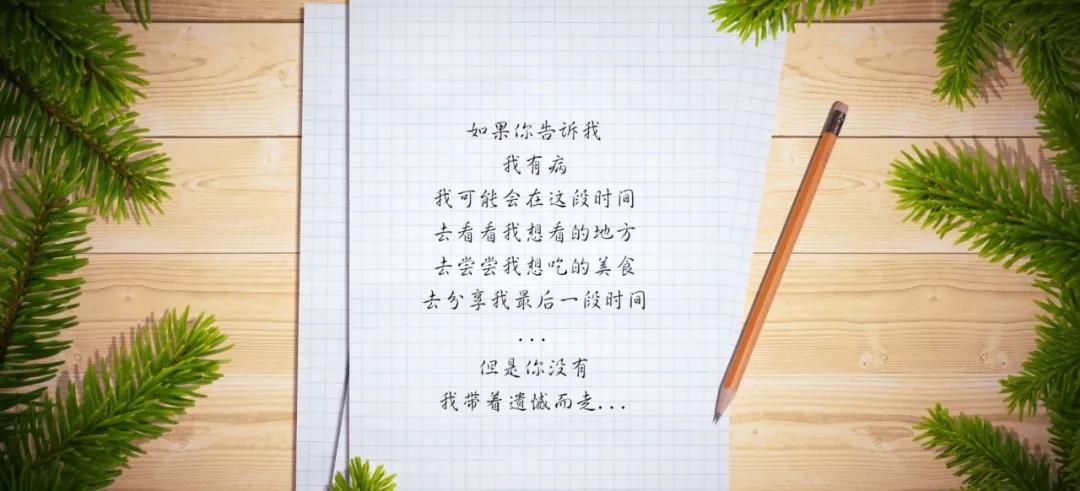 如果你告诉我
我有病
我可能会在这段时间
去看看我想看的地方
去尝尝我想吃的美食
去分享我最后一段时间
...
但是你没有
我带着遗憾而走...